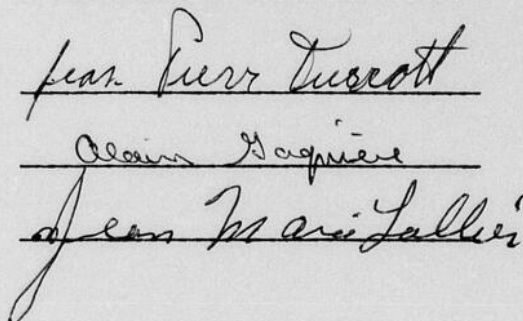 Jean Pierr Turcott
Alain Gagnière
Jean Marie Lallier